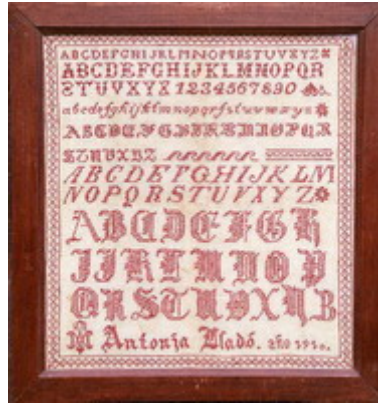 ABCDEFGHIJKLMNOPQRSTUVXYZ
ABCDEFGHIJKLMNOPQR
STUVXYX 1234567890
abcdefghijklmnopqrstuvwxyz
ABCDEFGHIJKLMNOPQR
STUVXYZ
ABCDEFGHIJKLM
NOPQRSTUVXYZ
ABCDEFGH
IJKLMNOP
QRSTUVXYZ
Antonia Lladó.